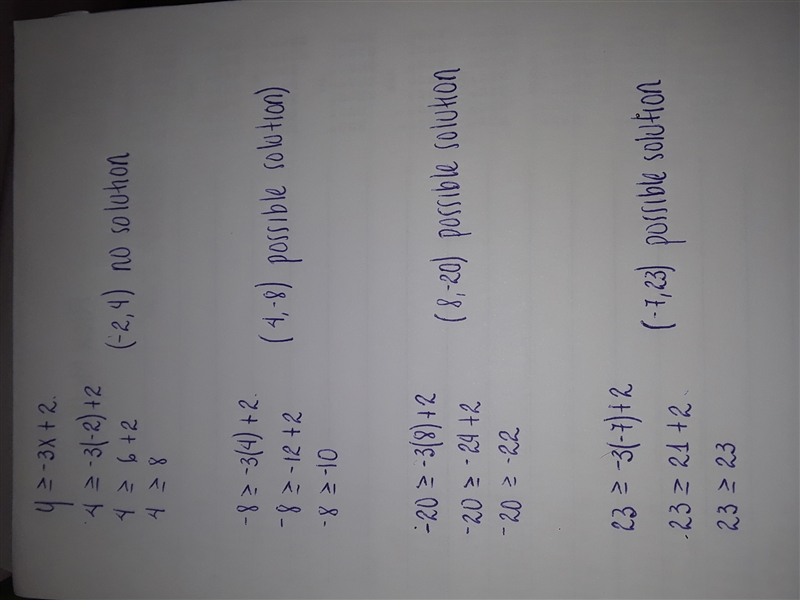 y ≥ -3x + 2.
4 ≥ -3(-2)+2
4 ≥ 6+2 (-2,4) no solution
4 ≥ 8
-8 ≥ -3(4)+2.
-8 ≥ -12+2 (4,-8) possible solution)
-8 ≥ -10
-20 ≥ -3(8)+2
-20 ≥ -24+2 (8,-20) possible solution
-20 ≥ -22
23 ≥ -3(-7)+2
23 ≥ 21+2. (-7,23) possible solution
23 ≥ 23